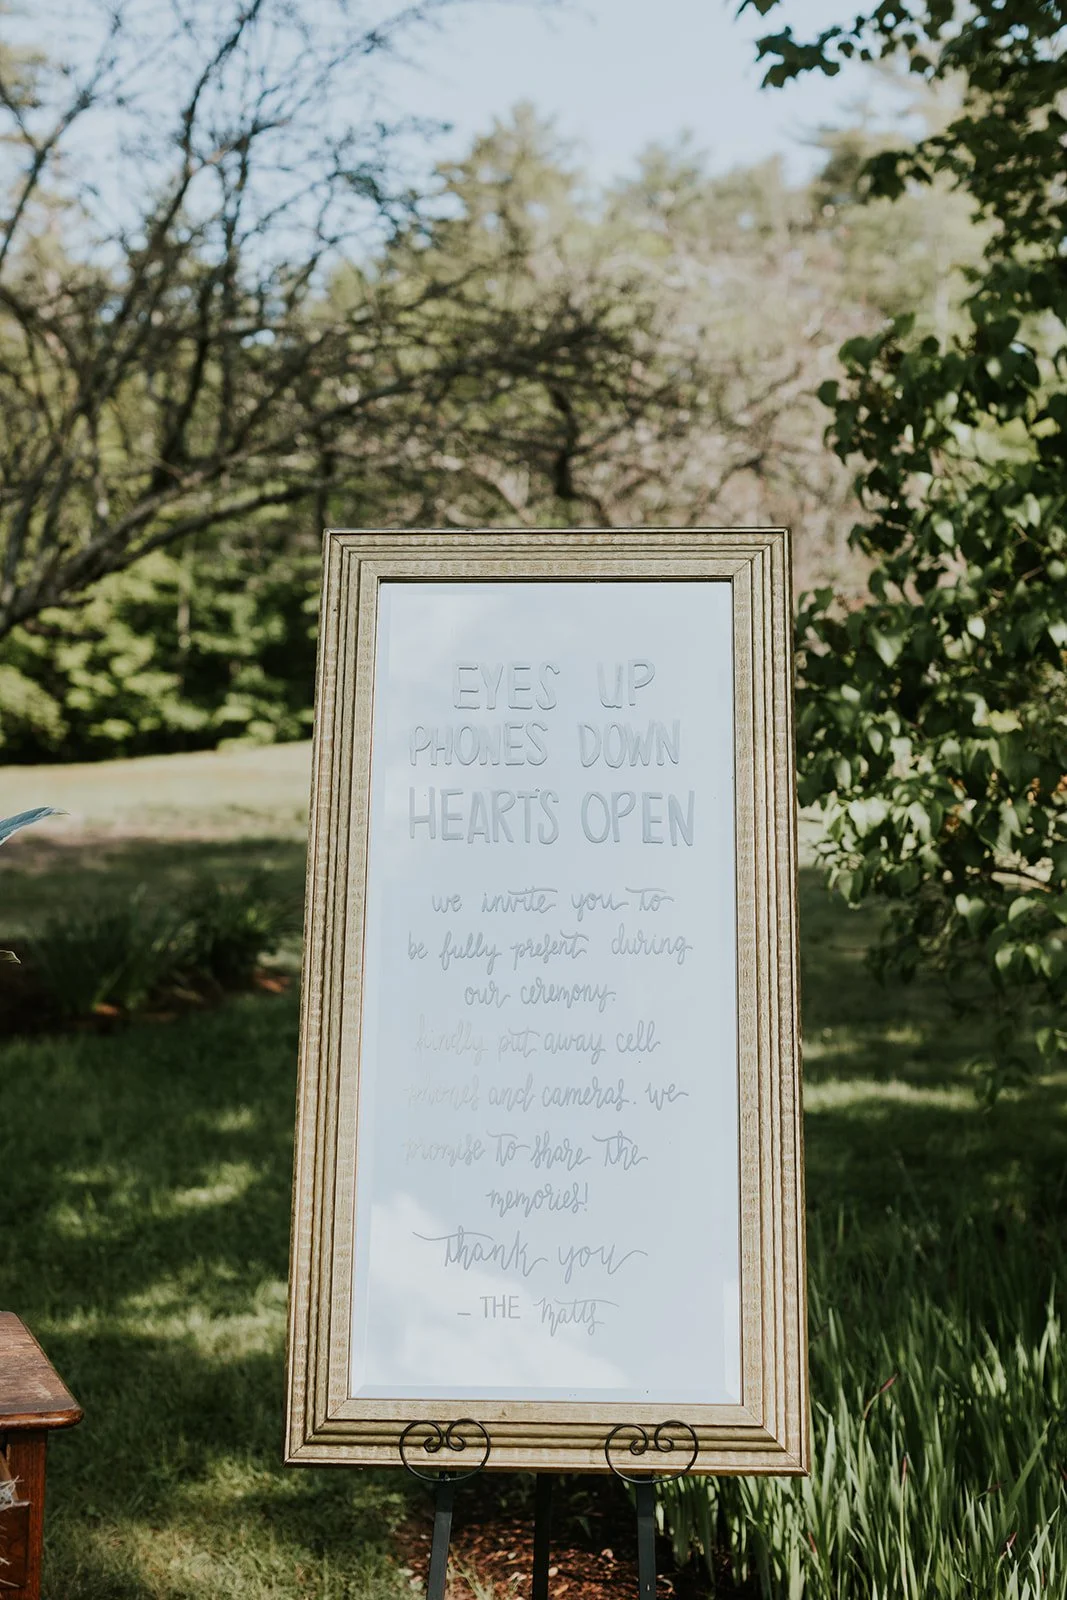 EYES UP
PHONES DOWN
HEARTS OPEN
we invite you to
be fully present during
our ceremony.
kindly put away cell
phones and cameras. we
promise to share the
memories!
thank you
- THE Matts